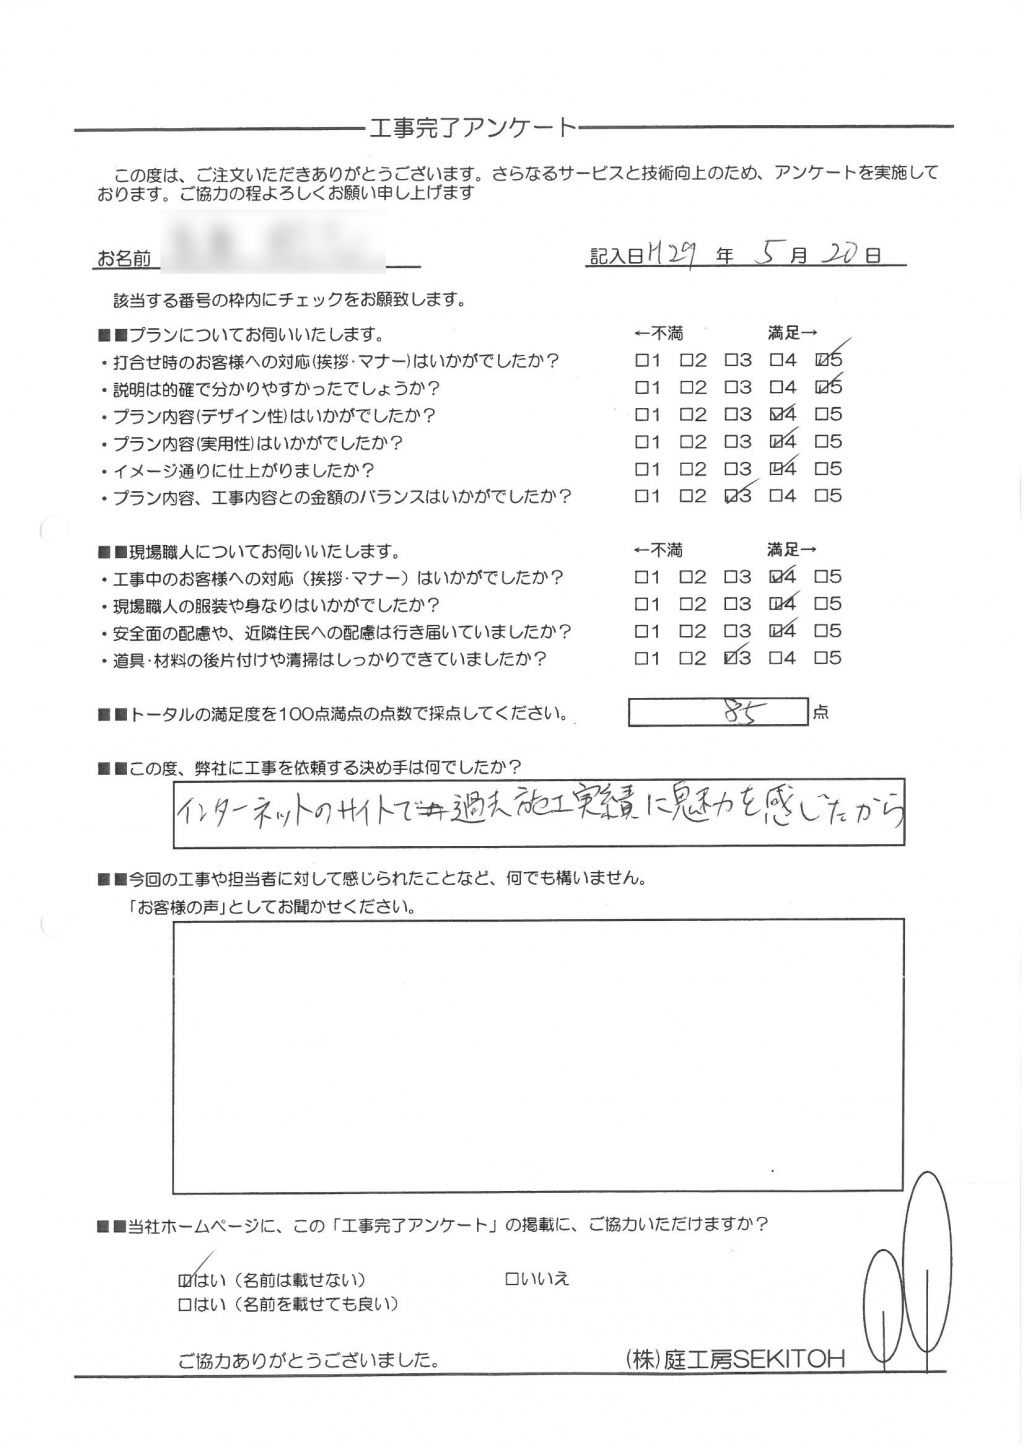 工事完了アンケート
この度は、ご注文いただきありがとうございます。さらなるサービスと技術向上のため、アンケートを実施して
おります。ご協力の程よろしくお願い申し上げます
お名前 記入日 H29 年 5 月 20 日
該当する番号の枠内にチェックをお願致します。
■■プランについてお伺いいたします。 ←不満 満足→
・打合せ時のお客様への対応(挨拶・マナー)はいかがでしたか? □1 □2 □3 □4 ☑5
・説明は的確で分かりやすかったでしょうか? □1 □2 □3 □4 ☑5
・プラン内容(デザイン性)はいかがでしたか? □1 □2 □3 ☑4 □5
・プラン内容(実用性)はいかがでしたか? □1 □2 □3 ☑4 □5
・イメージ通りに仕上がりましたか? □1 □2 □3 ☑4 □5
・プラン内容、工事内容との金額のバランスはいかがでしたか? □1 □2 ☑3 □4 □5
■■現場職人についてお伺いいたします。 ←不満 満足→
・工事中のお客様への対応（挨拶・マナー）はいかがでしたか? □1 □2 □3 ☑4 □5
・現場職人の服装や身なりはいかがでしたか? □1 □2 □3 ☑4 □5
・安全面の配慮や、近隣住民への配慮は行き届いていましたか? □1 □2 □3 ☑4 □5
・道具・材料の後片付けや清掃はしっかりできていましたか? □1 □2 ☑3 □4 □5
■■トータルの満足度を100点満点の点数で採点してください。 85 点
■■この度、弊社に工事を依頼する決め手は何でしたか?
インターネットのサイトで過去施工実績に魅力を感じたから
■■今回の工事や担当者に対して感じられたことなど、何でも構いません。
「お客様の声」としてお聞かせください。
■■当社ホームページに、この「工事完了アンケート」の掲載に、ご協力いただけますか?
☑はい（名前は載せない） □いいえ
□はい（名前を載せても良い）
ご協力ありがとうございました。 (株)庭工房SEKITOH